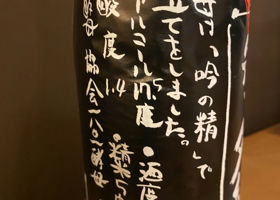 母は、「吟の精」で
立てをしました。
アルコール15度 ・酒度
酸度 1.4 ・精米5
酵母 協会1801酵母